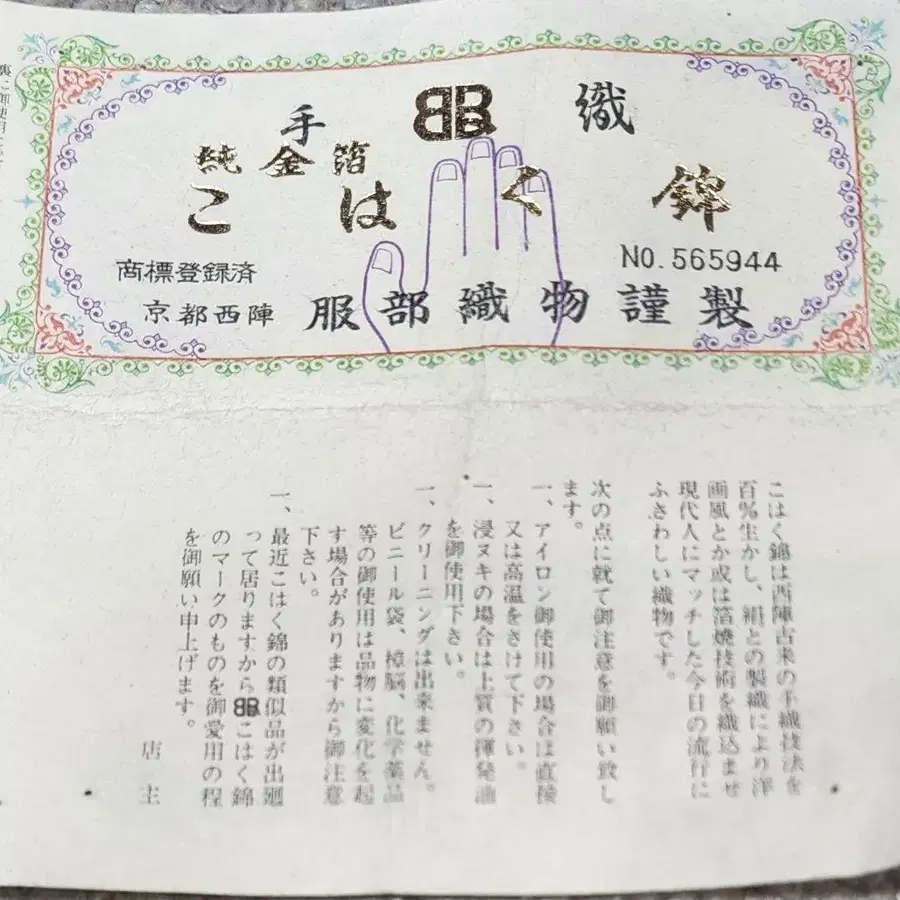 手 織
純金箔
こはく錦
商標登録済
NO.565944
京都西陣 服部織物謹製
こはく錦は西陣古来の手織技法を
百%生かし、絹との製織により洋
画風とか或は箔焼技術を織込ませ
現代人にマッチした今日の流行に
ふさわしい織物です。
次の点に就て御注意を御願い致し
ます。
一、アイロン御使用の場合は直接
又は高温をさけて下さい。
一、浸ヌキの場合は上質の揮発油
を御使用下さい。
一、クリーニングは出来ません。
ビニール袋、樟脳、化学薬品
等の御使用は品物に変化を起
す場合がありますから御注意
下さい。
一、最近こはく錦の類似品が出廻
って居りますからBBこはく錦
のマークのものを御愛用の程
を御願い申上げます。
店主